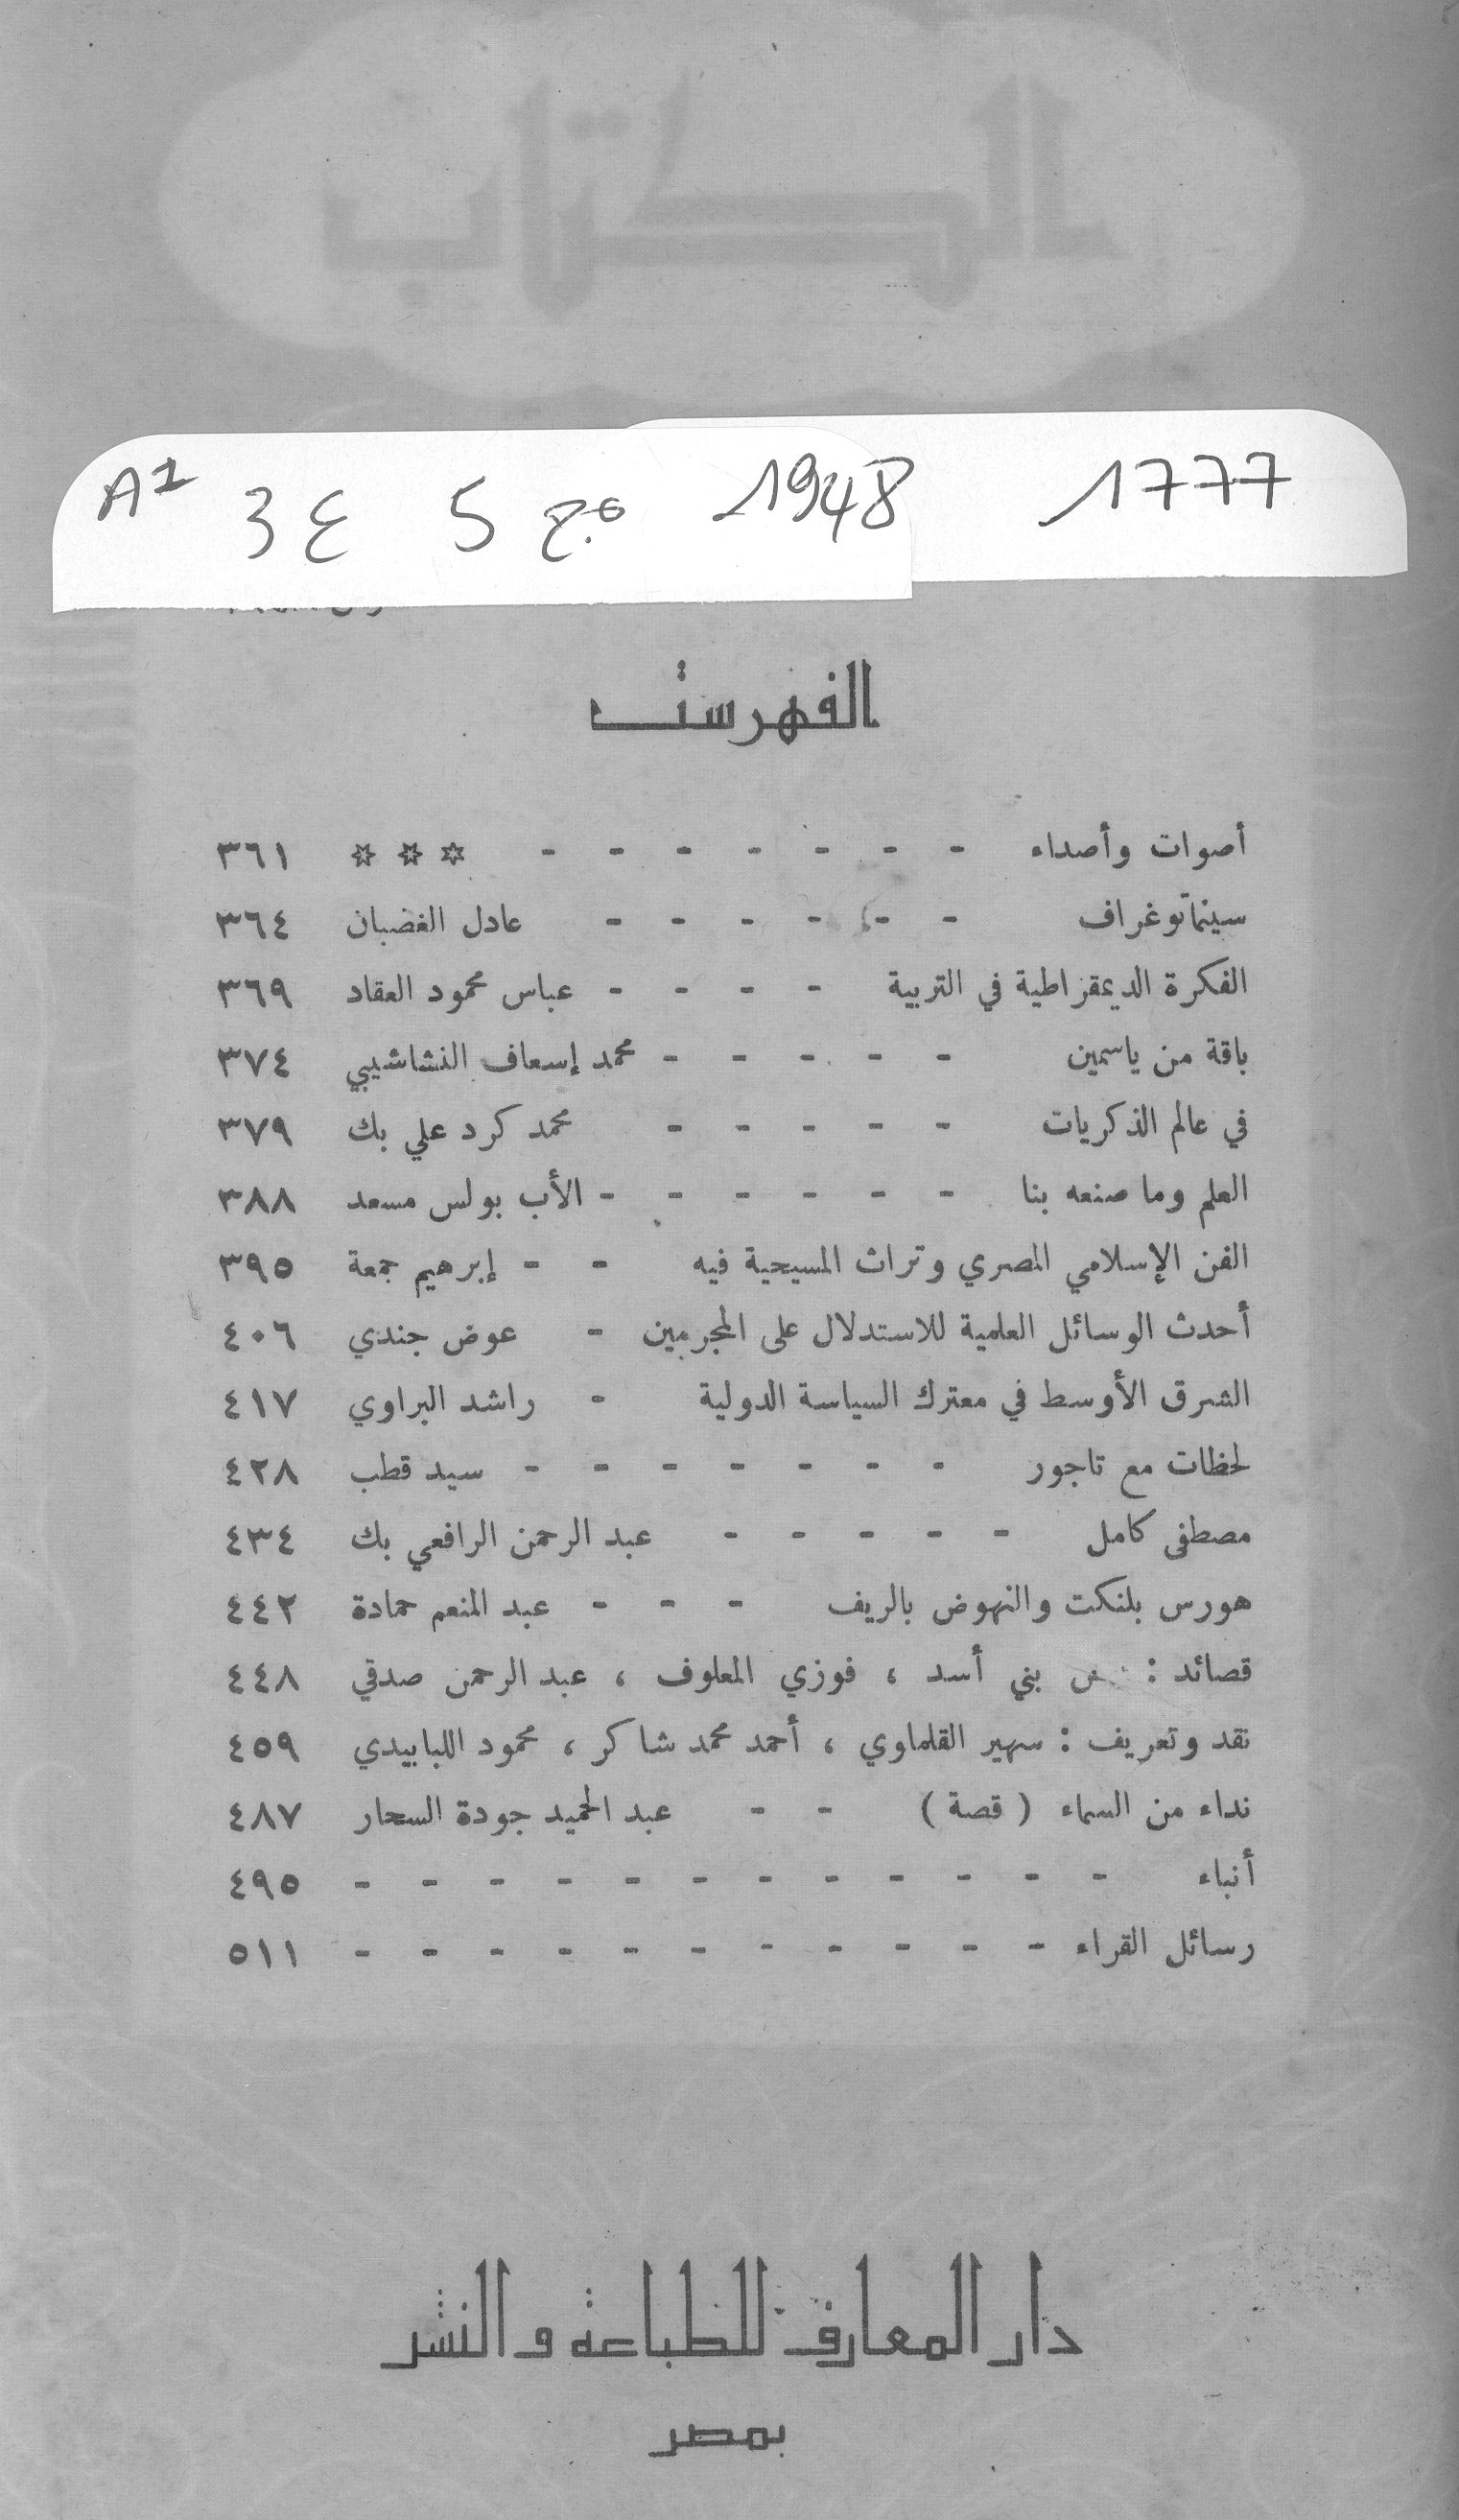 الكتاب
1777
1948 مج 5 ع 3 A1
الفهرست
أصوات وأصداء - - - - - - - * * * ٣٦١
سينماتوغراف - - - - - - عادل الغضبان ٣٦٤
الفكرة الديمقراطية في التربية - - - - عباس محمود العقاد ٣٦٩
باقة من ياسمين - - - - - محمد إسعاف النشاشيبي ٣٧٤
في عالم الذكريات - - - - - محمد كرد علي بك ٣٧٩
العلم وما صنعه بنا - - - - - - الأب بولس مسعد ٣٨٨
الفن الإسلامي المصري وتراث المسيحية فيه - - إبرهيم جمعة ٣٩٥
أحدث الوسائل العلمية للاستدلال على المجرمين - عوض جندي ٤٠٦
الشرق الأوسط في معترك السياسة الدولية - راشد البراوي ٤١٧
لحظات مع تاجور - - - - - - - سيد قطب ٤٢٨
مصطفى كامل - - - - - عبد الرحمن الرافعي بك ٤٣٤
هورس بلنكت والنهوض بالريف - - - عبد المنعم حمادة ٤٤٢
قصائد : بني أسد ، فوزي المعلوف ، عبد الرحمن صدقي ٤٤٨
نقد وتعريف : سهير القلماوي ، أحمد محمد شاكر ، محمود اللبابيدي ٤٥٩
نداء من السماء ( قصة ) - - عبد الحميد جودة السحار ٤٨٧
أنباء - - - - - - - - - - - - ٤٩٥
رسائل القراء - - - - - - - - - - - ٥١١
دار المعارف للطباعة والنشر
بمصر